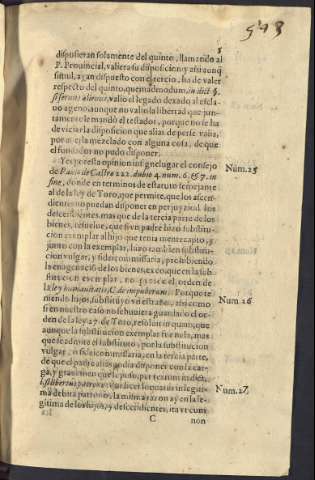 543
5
dispusieran solamente del quinto, llamando al
P. Prouincial, valiera su disposicion, y assi aunq
simul, ayan dispuesto con el tercio, ha de valer
respecto del quinto, quemadmodum, in dict. §.
si seruus alienus, valio el legado dexado al escla
uo ageno, aunque no valio la libertad que jun-
tamente le mandó el testador, porque no se ha
de viciar la disposicion que alias de per se valia,
por auerla mezclado con alguna cosa, de que
el fundador no pudo disponer.
Y es por esta opinion insigne lugar el consejo
Num. 25
de Paulo de Castro 222. dubio 4. num. 6. & 7. in
fine, donde en terminos de estatuto semejante
al de la ley de Toro, que permite, que los ascen
dientes no puedan disponer en perjuyzio de los
descendientes, mas que de la tercia parte de los
bienes, resuelue, que si vn padre hizo substitu-
cion exemplar al hijo que tenia mentecapto, y
junto con la exemplar, hizo tambien substitu-
cion vulgar, y fideicommissaria, prohibiendo
la enagenacion de los bienes, exo que en la subs
titucion exemplar, no el orden de
la ley humanitatis, C. de impuberum. Porque te
niendo hijos, substituyò vn estraño, assi como
Num. 26
si en nuestro caso no se huuiera guardado el or-
den de la ley 27. de Toro, resoluit inquam, que
aunque la substitucion exemplar fue nula, mas
que se admita el substituto, por la substitucion
vulgar, fideicommissaria, en la tercia parte,
de que el padre podia disponer con la car-
ga, y grauamen que le puso, per textum in dict.
l. si libertus patrono
Num. 27
ma debita patrono, la misma razon ay en la le-
gitima de los hijos, y descendientes, ita vt cum
C
non